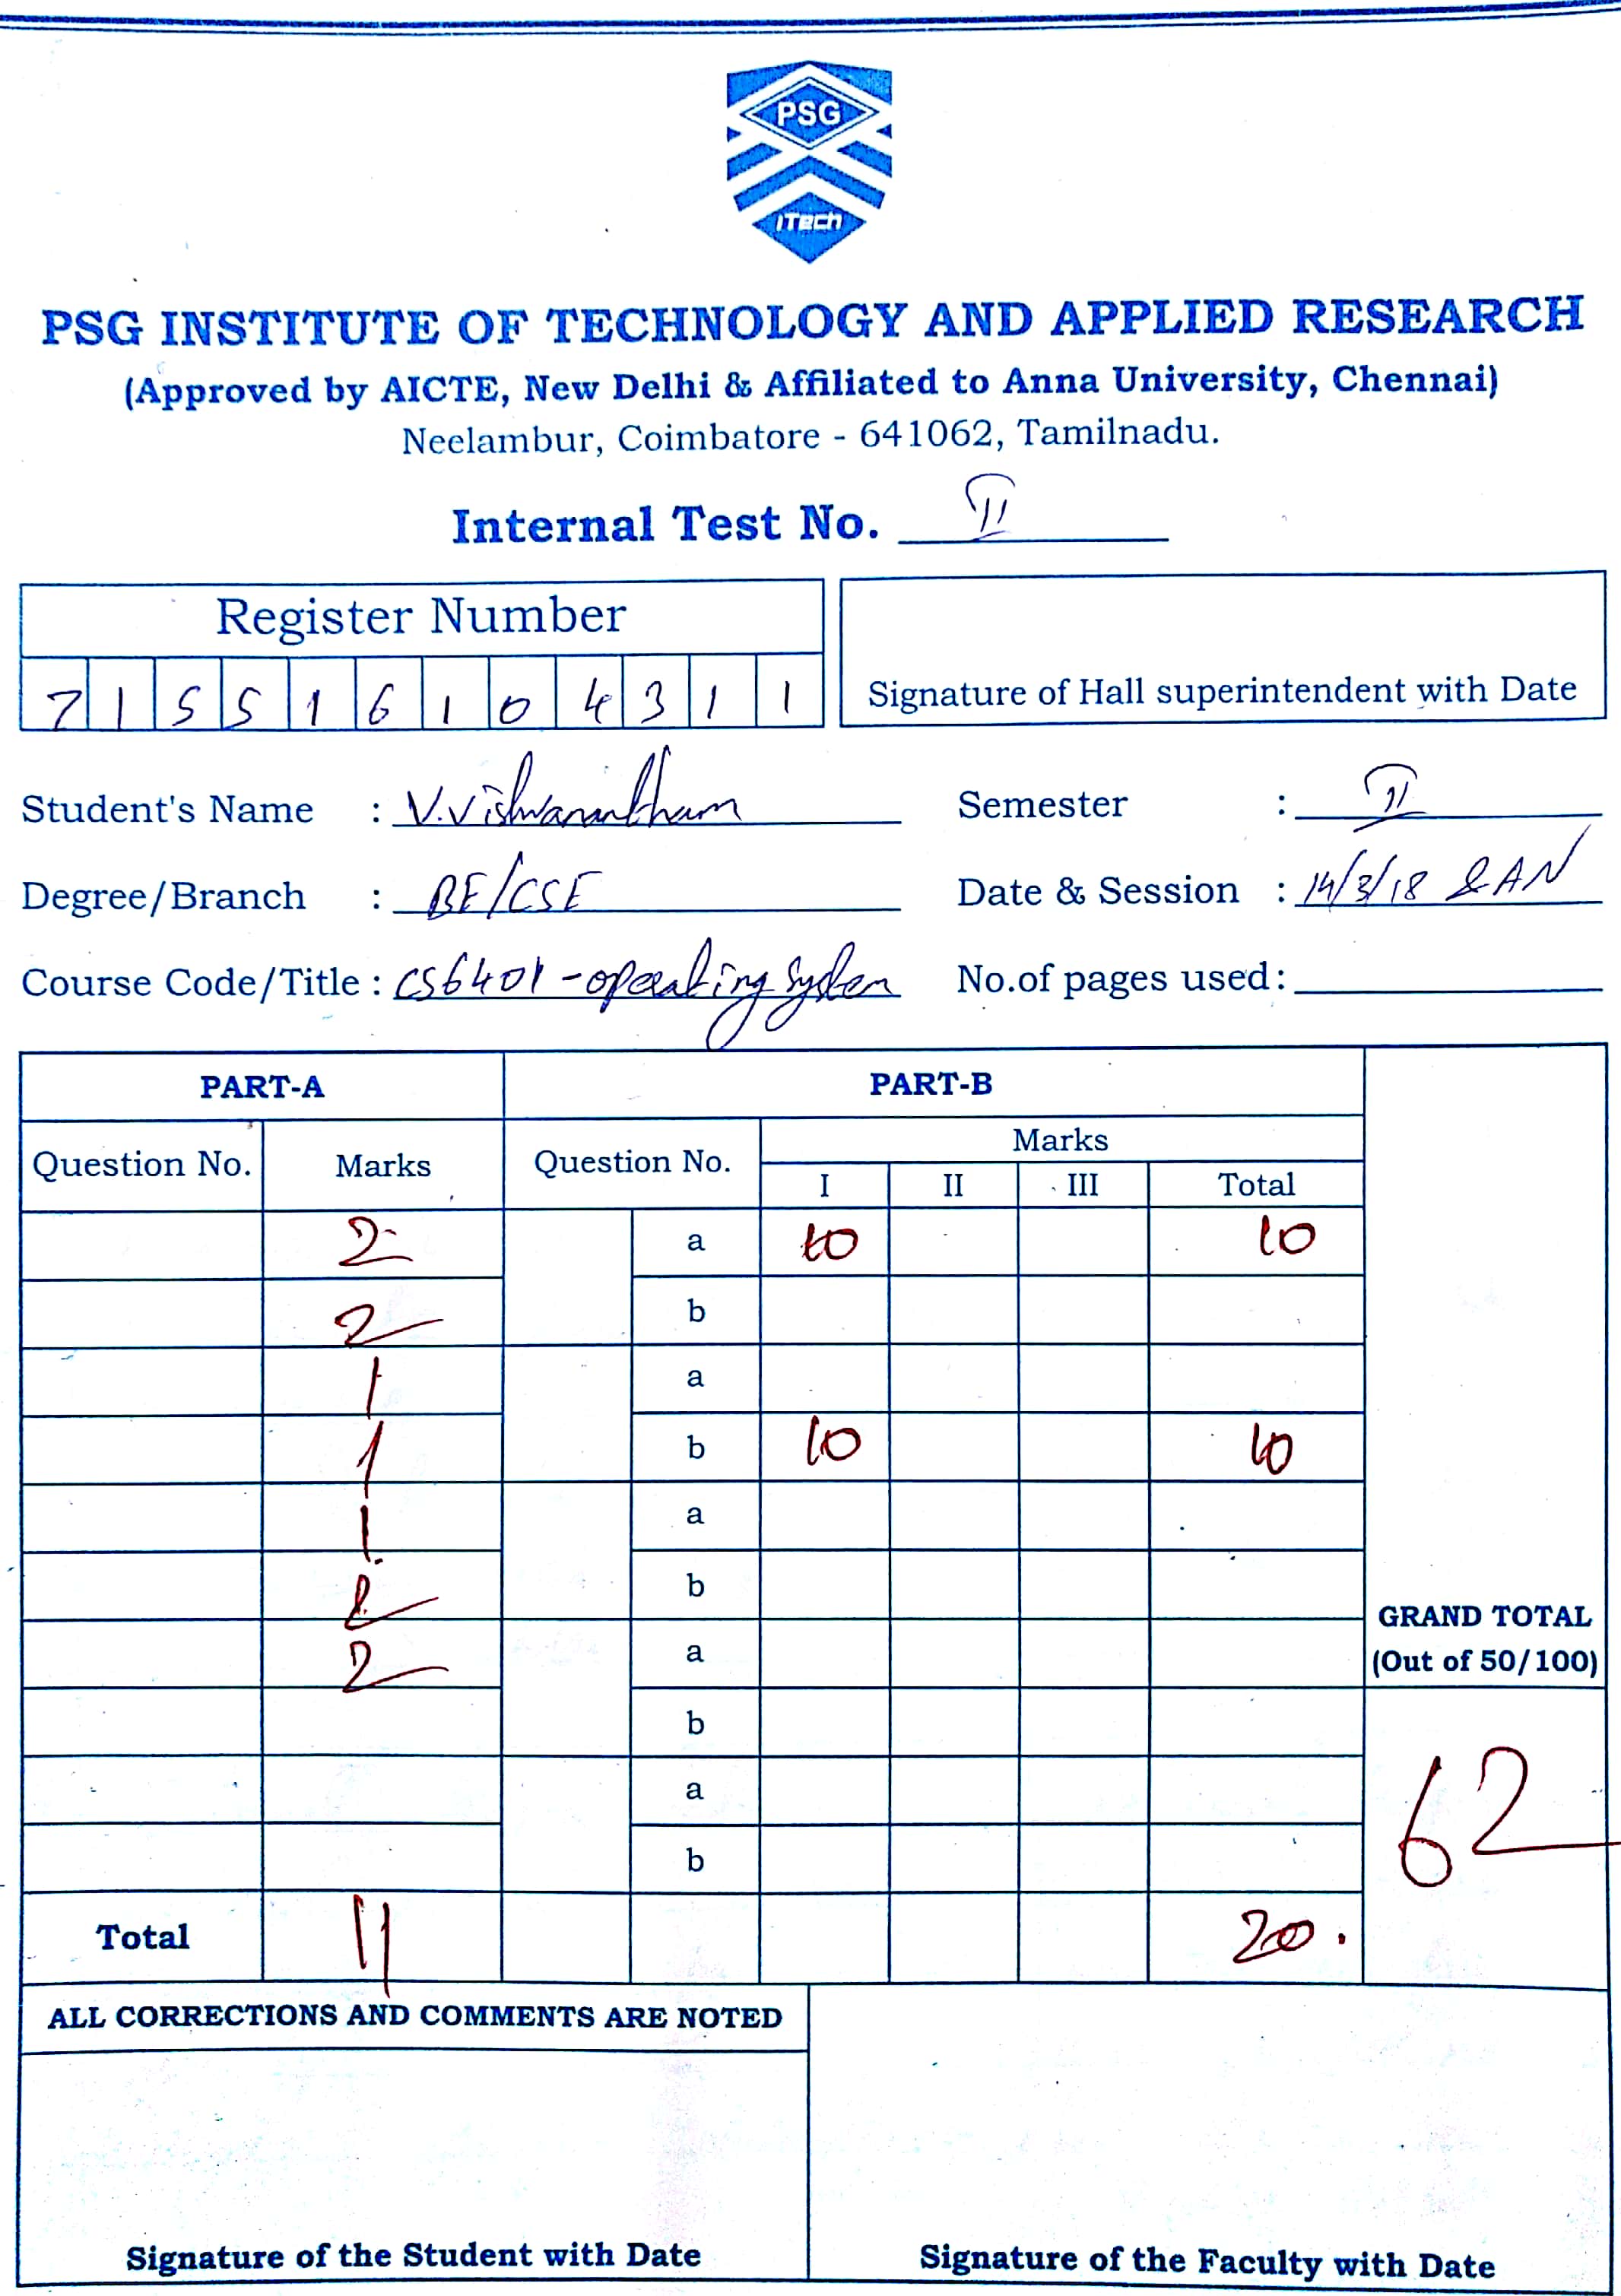 PSG
iTech
PSG INSTITUTE OF TECHNOLOGY AND APPLIED RESEARCH
(Approved by AICTE, New Delhi & Affiliated to Anna University, Chennai)
Neelambur, Coimbatore - 641062, Tamilnadu.
Internal Test No. II
Register Number
7 1 5 5 1 6 1 0 4 3 1 1
Signature of Hall superintendent with Date
Student's Name : V.Vishwanantham
Semester : II
Degree/Branch : BE/CSE
Date & Session : 14/3/18 & AN
Course Code/Title : CS6401 - operating System
No.of pages used:
PART-A PART-B
Question No. Marks Question No. Marks
I II III Total
2 a 10 10
2 b
1 a
1 b 10 10
1 a
2 b
2 a
b
a
b
GRAND TOTAL
(Out of 50/100)
62
Total 11 20.
ALL CORRECTIONS AND COMMENTS ARE NOTED
Signature of the Student with Date
Signature of the Faculty with Date